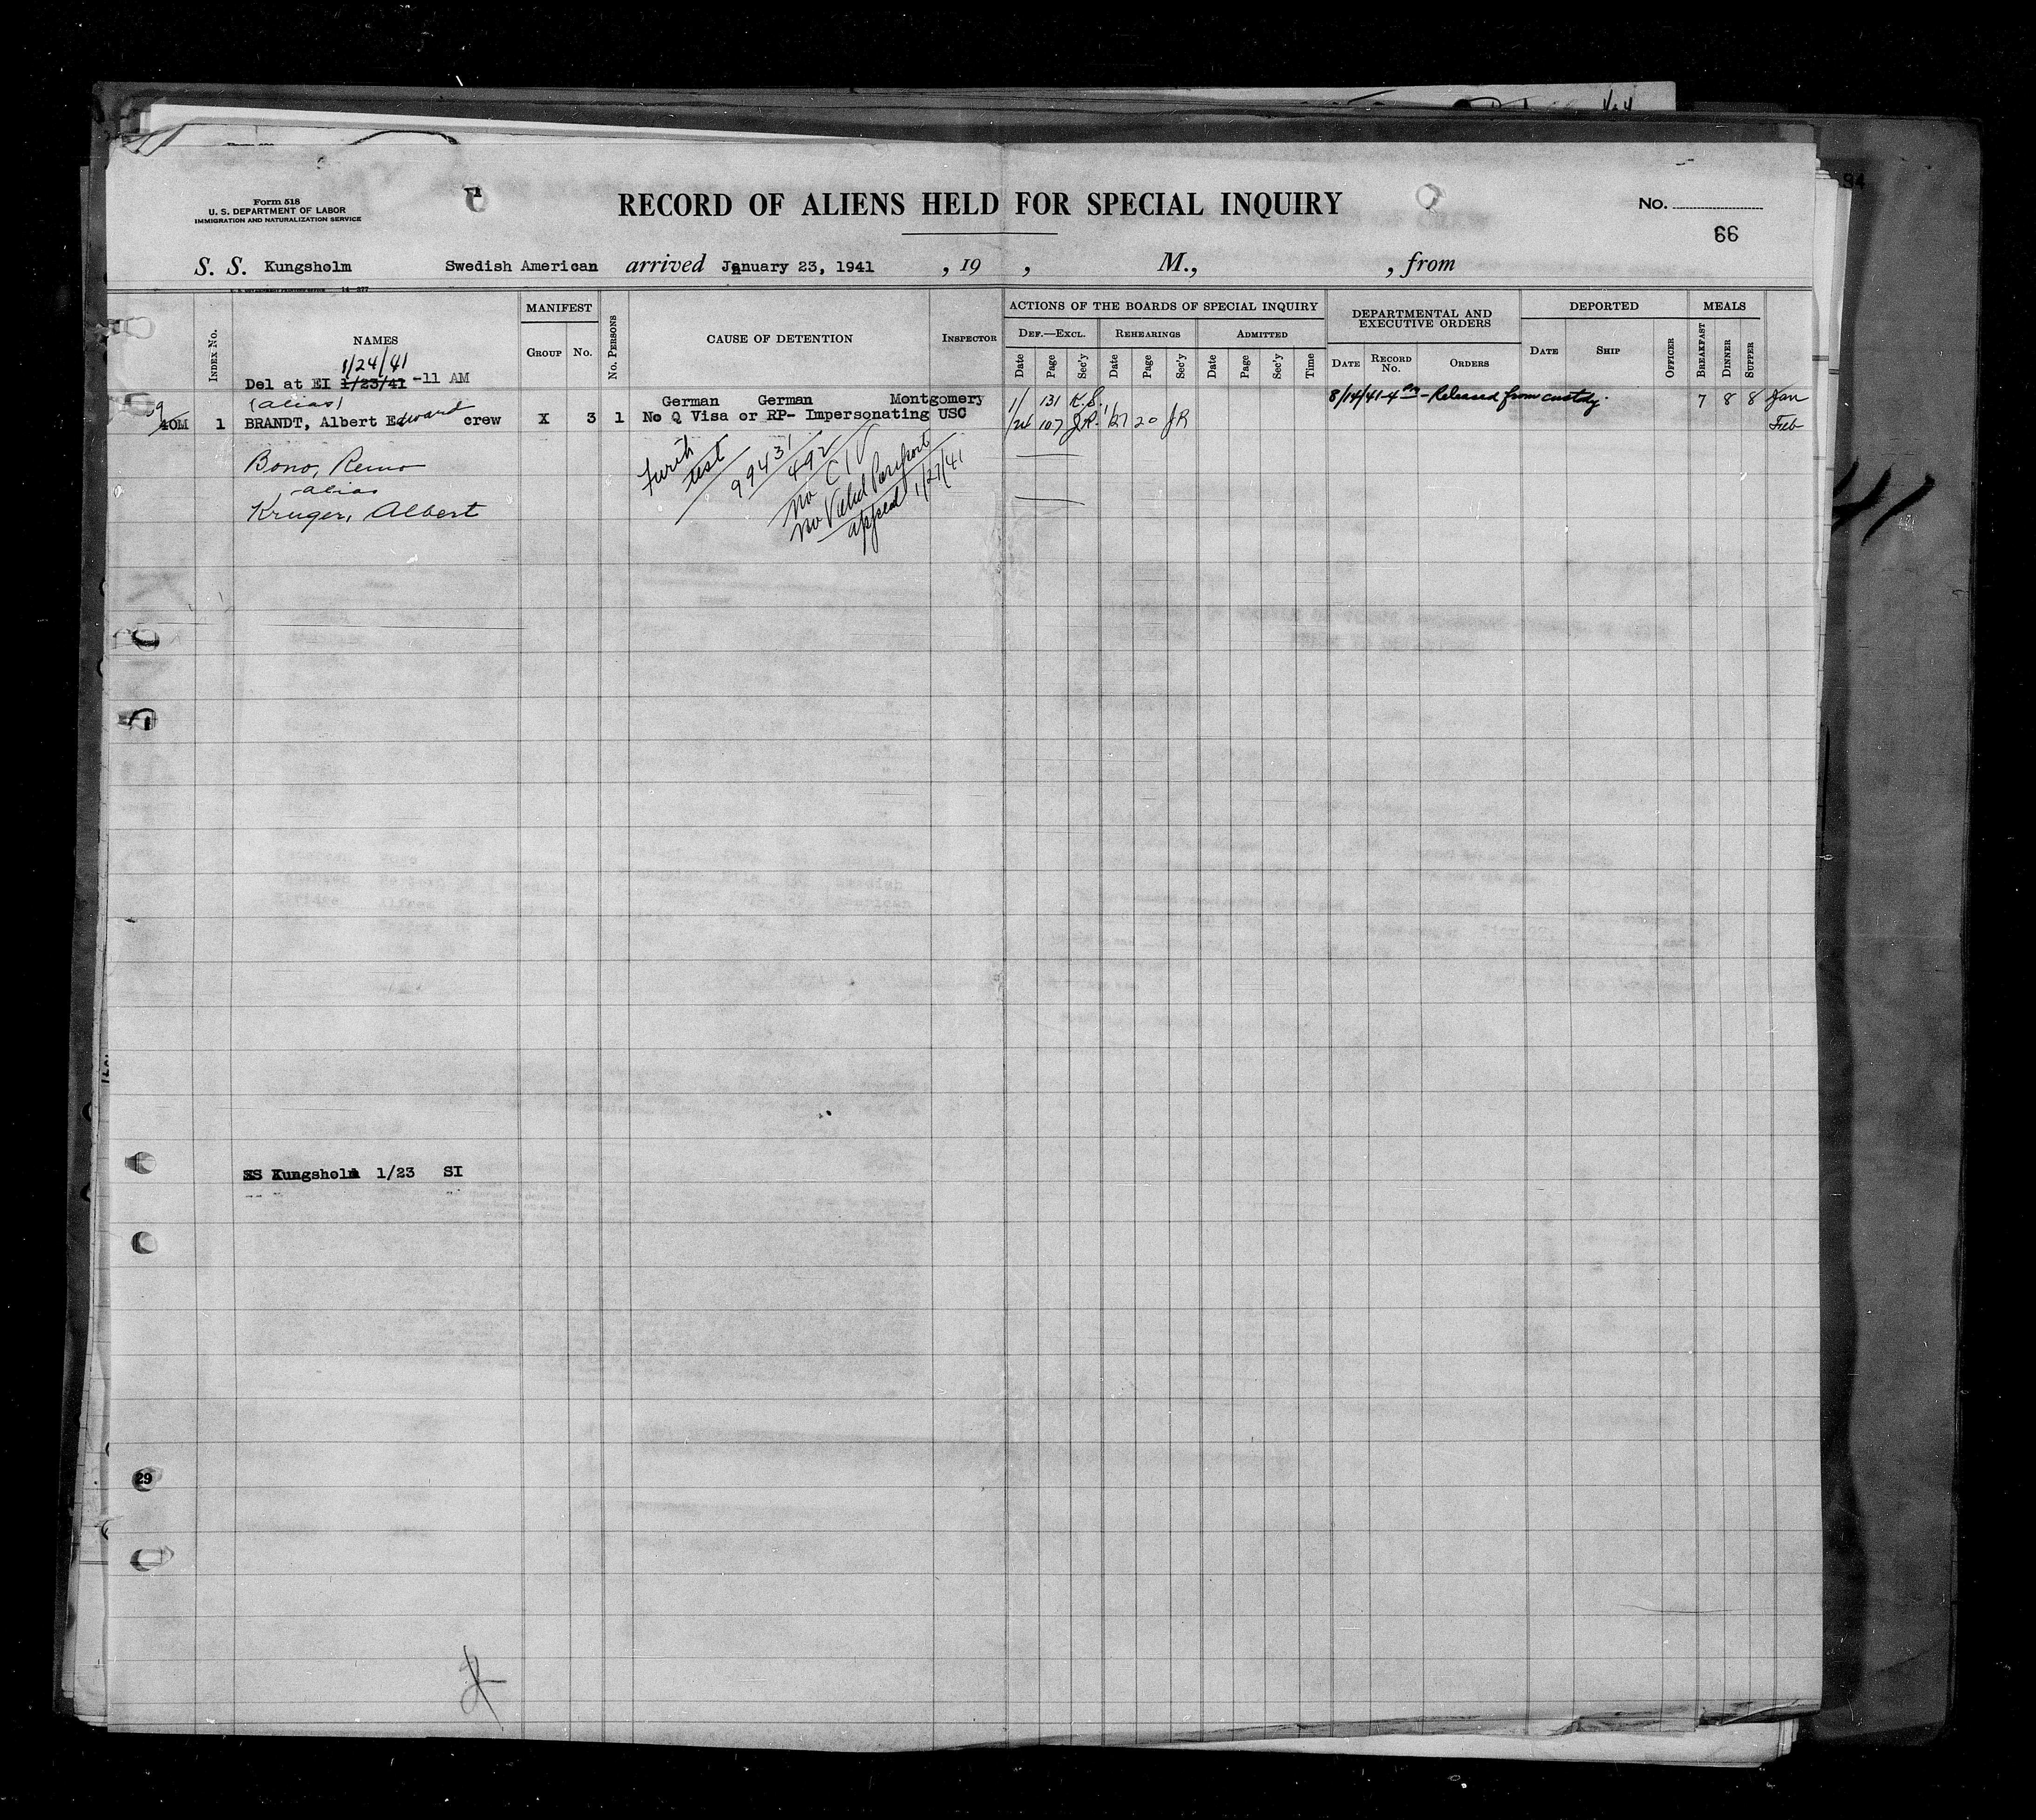 Form 518
U. S. DEPARTMENT OF LABOR
IMMIGRATION AND NATURALIZATION SERVICE
RECORD OF ALIENS HELD FOR SPECIAL INQUIRY
No.
66
S. S. Kungsholm Swedish American arrived January 23, 1941 , 19 , M., , from
14-277
Index No.
NAMES
MANIFEST
Group No.
No. Persons
CAUSE OF DETENTION
Inspector
ACTIONS OF THE BOARDS OF SPECIAL INQUIRY
Def.—Excl. Rehearings Admitted
Date Page Sec'y Date Page Sec'y Date Page Sec'y Time
DEPARTMENTAL AND
EXECUTIVE ORDERS
Date Record No. Orders
DEPORTED
Date Ship Officer
MEALS
Breakfast Dinner Supper
1/24/41
Del at EI 1/23/41 -11 AM
(alias) German German Montgomery 1/ 131 K.S. 8/14/41-4 PM - Released from custody. 7 8 8 Jan
40M 1 BRANDT, Albert Edward crew X 3 1 No Q Visa or RP- Impersonating USC /24 107 J.R. 1/27 20 JR Feb
Bono, Remo
alias
Kruger, Albert
test
99431
492
No C I V
No Valid Passport
apped 1/27/41
SS Kungsholm 1/23 SI
29